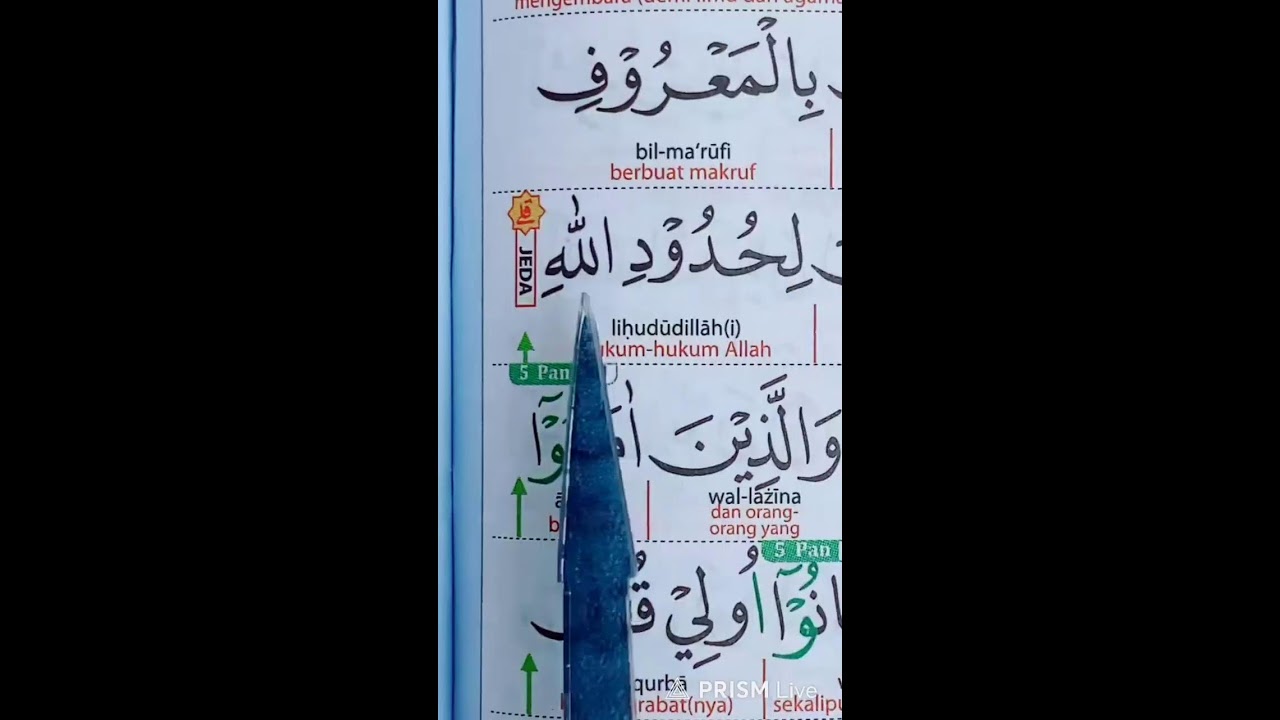 mengembara (demi ilmu dan agama
بِالْمَعْرُوْفِ
bil-ma‘rūfi
berbuat makruf
لِحُدُوْدِ اللّٰهِ ۗ
JEDA
liḥudūdillāh(i)
kum-hukum Allah
5 Pan
وَالَّذِيْنَ
wal-lażīna
dan orang-
orang yang
5 Pan
انُوْٓا اُولِيْ
qurbā
rabat(nya)
sekalipu
PRISM Live